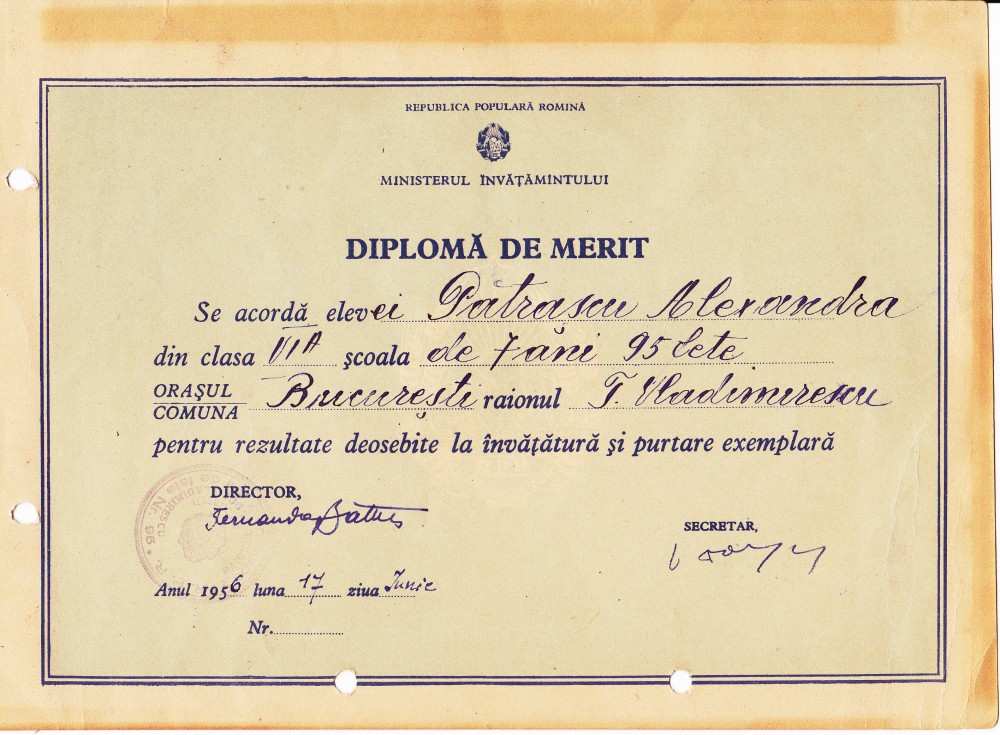 REPUBLICA POPULARĂ ROMINĂ
MINISTERUL ÎNVĂȚĂMÎNTULUI
DIPLOMĂ DE MERIT
Se acordă elevei Pătrașcu Alexandra
din clasa VI A școala de 7 ani 95 fete
ORAȘUL
COMUNA București raionul T. Vladimirescu
pentru rezultate deosebite la învățătură și purtare exemplară
DIRECTOR,
Fernanda
SECRETAR,
Anul 1956 luna 17 ziua Iunie
Nr.
Nr. 95